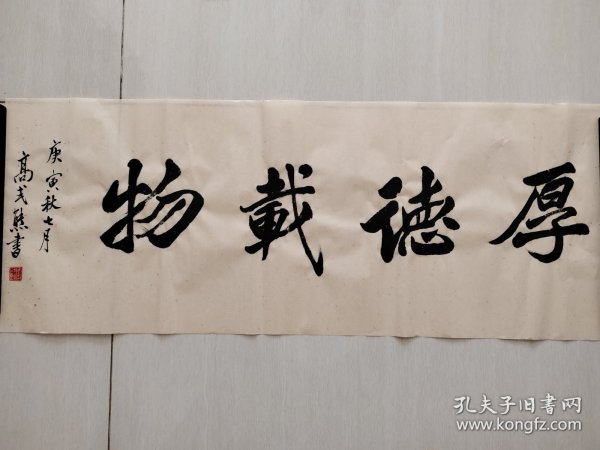 厚德載物
庚寅秋七月
高式熊書
孔夫子旧書网
www.kongfz.com